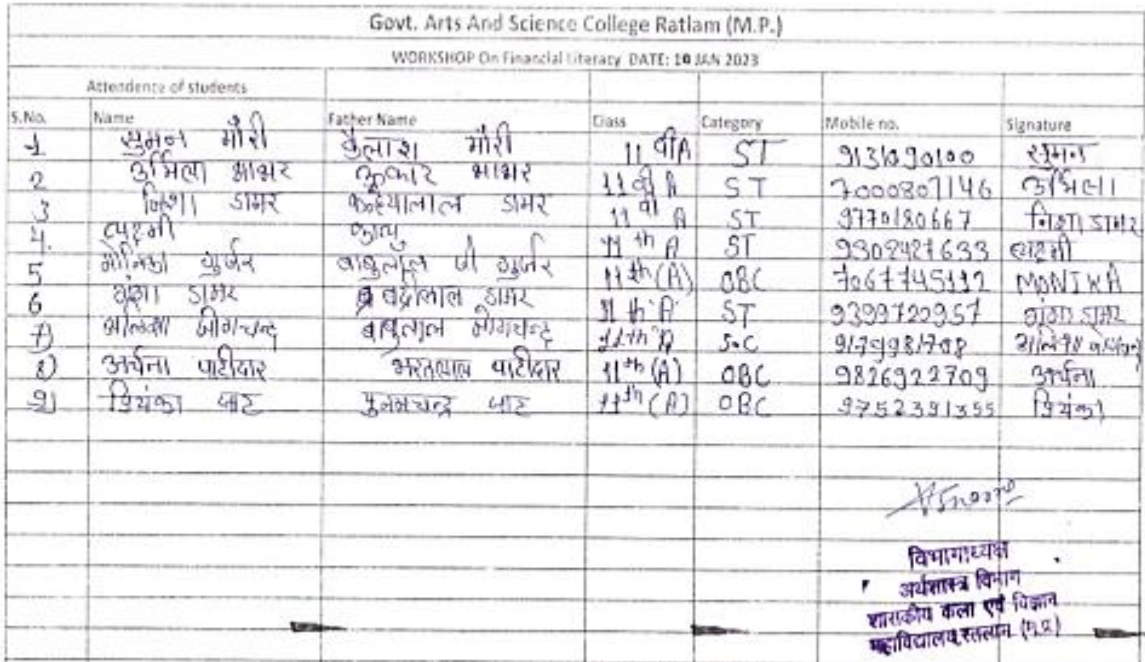 Govt. Arts And Science College Ratlam (M.P.)
WORKSHOP On Financial Literacy DATE: 10 JAN 2023
Attendence of students
S.No. Name Father Name Class Category Mobile no. Signature
1 सुमन मौरी कैलाश मौरी 11 वी A ST 9131090100 सुमन
2 उर्मिला भाभर भाभर 11 वी A ST 7000807146 उर्मिला
3 निशा डामर कन्हैयालाल डामर 11 वी A ST 9770180667 निशा डामर
4. लक्ष्मी कालु 11 th A ST 9302427633 लक्ष्मी
5 मोनिका गुर्जर बाबुलाल जी गुर्जर 11th (A) OBC 7067745112 MONIKA
6 डामर बद्रीलाल डामर 11 th A ST 9399720957 डामर
7) बाबुलाल 11th A S.C
8) अर्चना पाटीदार भरतलाल पाटीदार 11th (A) OBC 9826922709 अर्चना
9) प्रियंका जाट पुनमचन्द्र जाट 11th (A) OBC 9752391355 प्रियंका
विभागाध्यक्ष
अर्थशास्त्र विभाग
शासकीय कला एवं विज्ञान
महाविद्यालय, रतलाम (म.प्र.)